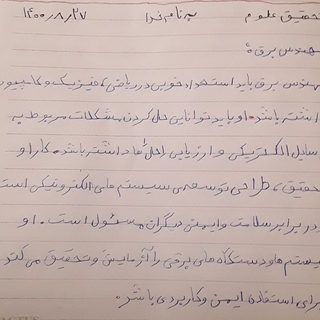 تحقیق علوم به نام خدا ۱۴۰۰/۸/۲۷
مهندس برق:
مهندس برق باید استعداد خوبی در ریاضی، فیزیک و کامپیو
داشته باشد. او باید توانایی حل کردن مشکلات مربوط به
وسایل الکتریکی و ارزیابی راحل ها داشته باشد. کار او
تحقیق، طراحی توسعه ی سیستم های الکترونیکی است
در برابر سلامت و ایمنی دیگران مسئول است. او
سیستم ها و دستگاه های برقی را آزمایش و تحقیق می کند
برای استفاده ایمن و کاربردی باشد.